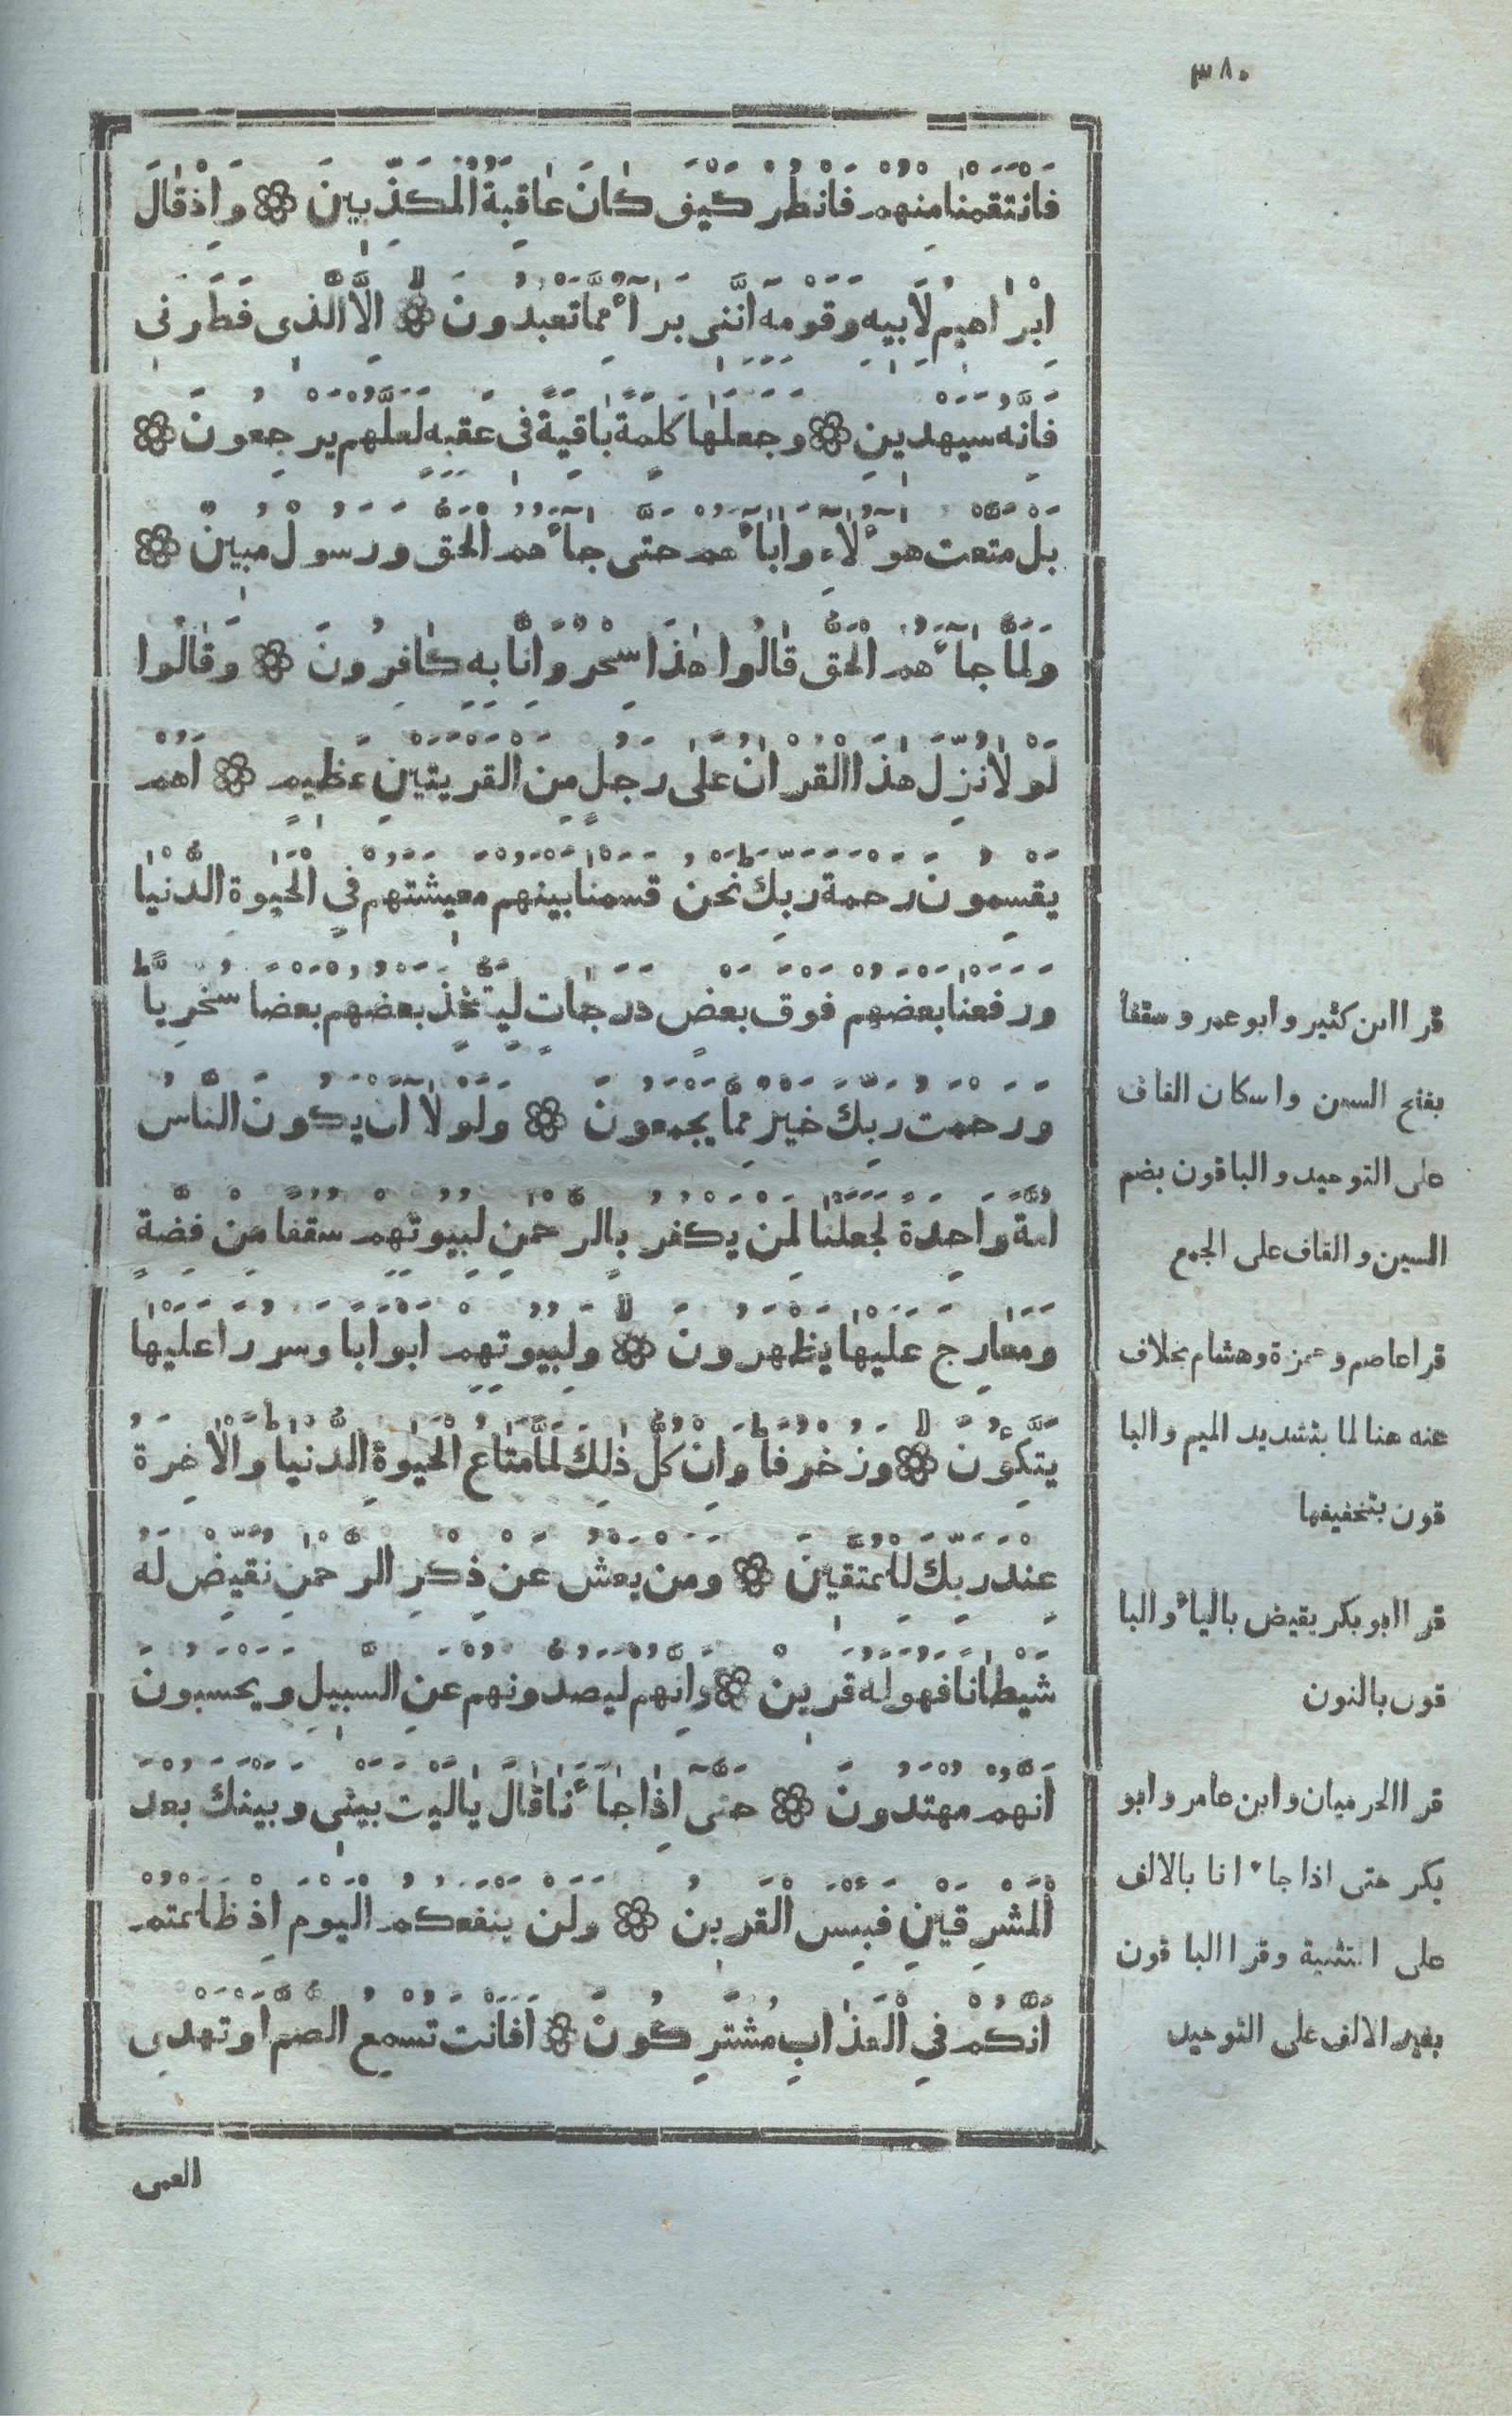 ٣٨٠
فَانْتَقَمْنَا مِنْهُمْ فَانْظُرْ كَيْفَ كَانَ عَاقِبَةُ الْمُكَذِّبِينَ ۞ وَاِذْقَالَ
اِبْرَاهِيمُ لِاَبِيهِ وَقَوْمِهِ اَنَّنِى بَرَآءٌ مِمَّا تَعْبُدُونَ ۞ اِلَّا الَّذِى فَطَرَنِى
فَاِنَّهُ سَيَهْدِينِ ۞ وَجَعَلَهَا كَلِمَةً بَاقِيَةً فِى عَقِبِهِ لَعَلَّهُمْ يَرْجِعُونَ ۞
بَلْ مَتَّعْتُ هٰؤُلَاءِ وَاٰبَآءَهُمْ حَتَّى جَآءَهُمُ الْحَقُّ وَرَسُولٌ مُبِينٌ ۞
وَلَمَّا جَآءَهُمُ الْحَقُّ قَالُوا هٰذَا سِحْرٌ وَاِنَّا بِهِ كَافِرُونَ ۞ وَقَالُوا
لَوْلَا نُزِّلَ هٰذَا الْقُرْاٰنُ عَلٰى رَجُلٍ مِنَ الْقَرْيَتَيْنِ عَظِيمٍ ۞ اَهُمْ
يَقْسِمُونَ رَحْمَةَ رَبِّكَ نَحْنُ قَسَمْنَا بَيْنَهُمْ مَعِيشَتَهُمْ فِى الْحَيٰوةِ الدُّنْيَا
وَرَفَعْنَا بَعْضَهُمْ فَوْقَ بَعْضٍ دَرَجَاتٍ لِيَتَّخِذَ بَعْضُهُمْ بَعْضًا سُخْرِيًّا
وَرَحْمَتُ رَبِّكَ خَيْرٌ مِمَّا يَجْمَعُونَ ۞ وَلَوْلَا اَنْ يَكُونَ النَّاسُ
اُمَّةً وَاحِدَةً لَجَعَلْنَا لِمَنْ يَكْفُرُ بِالرَّحْمٰنِ لِبُيُوتِهِمْ سُقُفًا مِنْ فِضَّةٍ
وَمَعَارِجَ عَلَيْهَا يَظْهَرُونَ ۞ وَلِبُيُوتِهِمْ اَبْوَابًا وَسُرُرًا عَلَيْهَا
يَتَّكِؤُنَ ۞ وَزُخْرُفًا وَاِنْ كُلُّ ذٰلِكَ لَمَّا مَتَاعُ الْحَيٰوةِ الدُّنْيَا وَالْاٰخِرَةُ
عِنْدَ رَبِّكَ لِلْمُتَّقِينَ ۞ وَمَنْ يَعْشُ عَنْ ذِكْرِ الرَّحْمٰنِ نُقَيِّضْ لَهُ
شَيْطَانًا فَهُوَ لَهُ قَرِينٌ ۞ وَاِنَّهُمْ لَيَصُدُّونَهُمْ عَنِ السَّبِيلِ وَيَحْسَبُونَ
اَنَّهُمْ مُهْتَدُونَ ۞ حَتّٰى اِذَا جَآءَنَا قَالَ يَالَيْتَ بَيْنِى وَبَيْنَكَ بُعْدَ
الْمَشْرِقَيْنِ فَبِئْسَ الْقَرِينُ ۞ وَلَنْ يَنْفَعَكُمُ الْيَوْمَ اِذْ ظَلَمْتُمْ
اَنَّكُمْ فِى الْعَذَابِ مُشْتَرِكُونَ ۞ اَفَاَنْتَ تُسْمِعُ الصُّمَّ اَوْتَهْدِى
العمى
قرا ابن كثير وابو عمر وسقفا
بفتح السين واسكان القاف
على التوحيد والباقون بضم
السين والقاف على الجمع
قرا عاصم وحمزة وهشام بخلاف
عنه هنا لما بتشديد الميم والبا
قون بتخفيفها
قرا ابو بكر يقيض بالياء والبا
قون بالنون
قرا الحرميان وابن عامر وابو
بكر حتى اذا جاءانا بالالف
على التثنية وقرا الباقون
بغير الالف على التوحيد